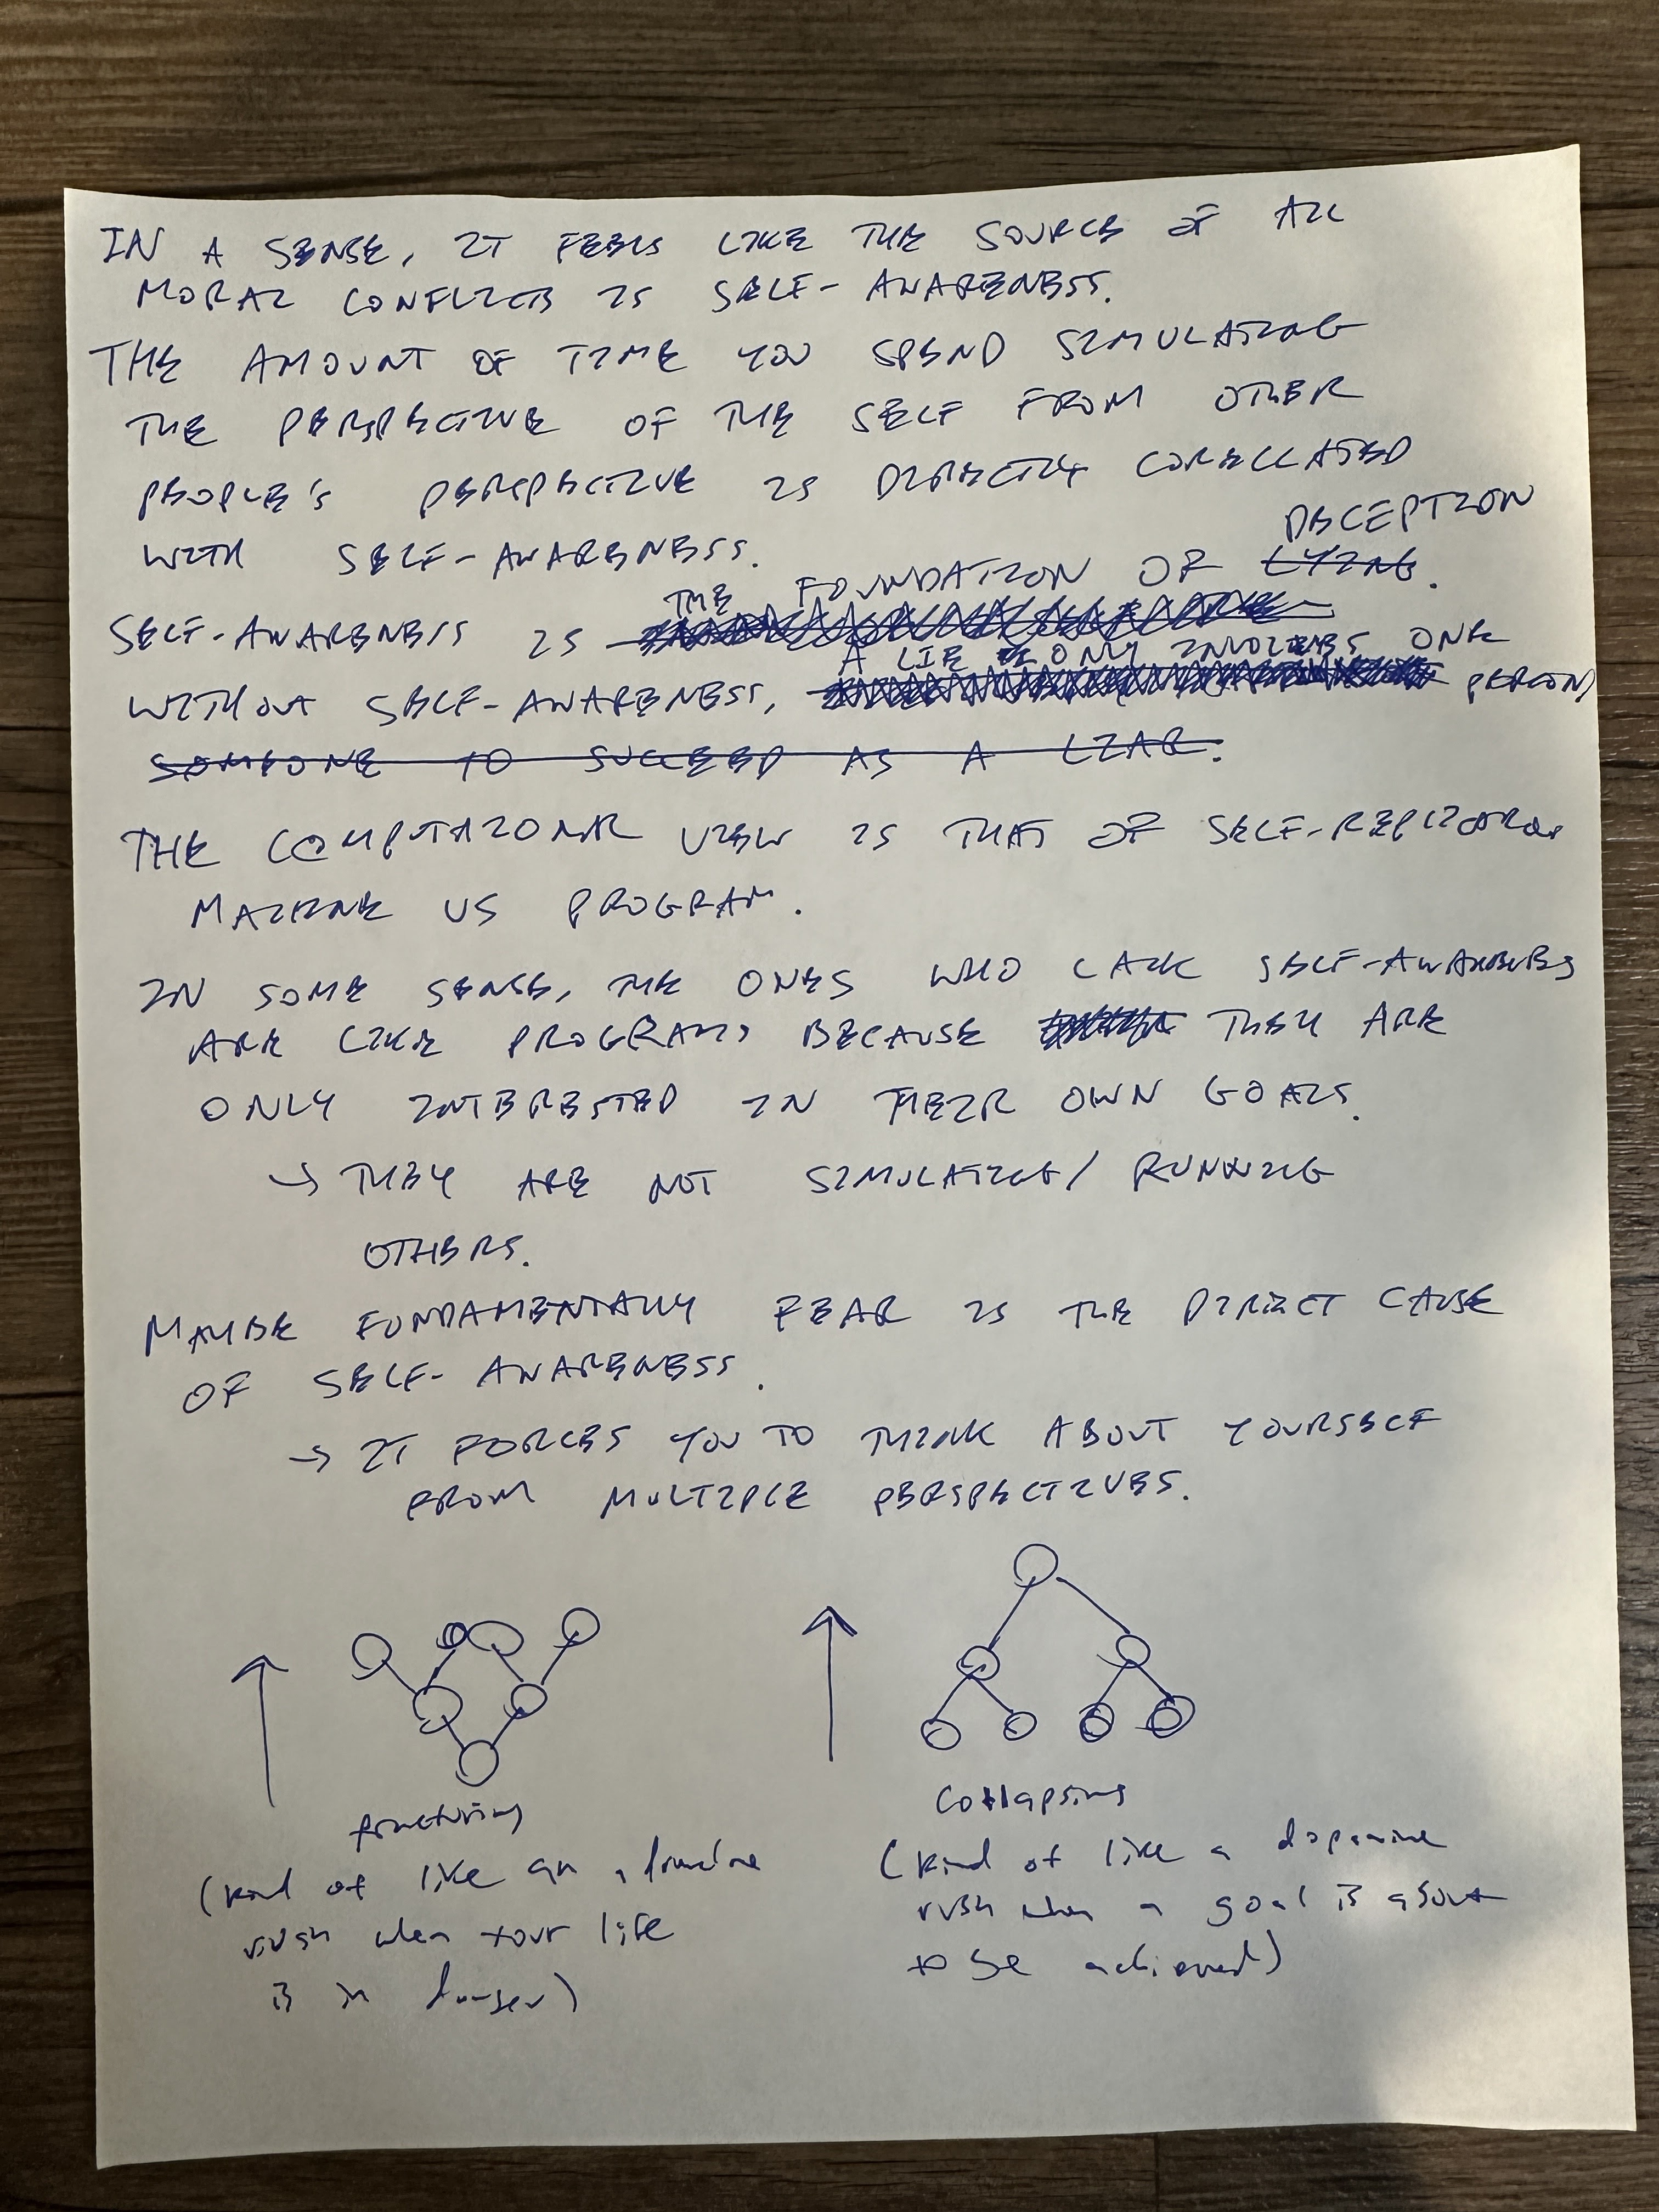 IN A SENSE, IT FEELS LIKE THE SOURCE OF ALL
MORAL CONFLICTS IS SELF-AWARENESS.
THE AMOUNT OF TIME YOU SPEND SIMULATING
THE PERSPECTIVE OF THE SELF FROM OTHER
PEOPLE'S PERSPECTIVE IS DIRECTLY CORELLATED
WITH SELF-AWARENESS.
SELF-AWARENESS IS THE FOUNDATION OF LYING DECEPTION.
WITHOUT SELF-AWARENESS, A LIE ONLY INVOLVES ONE PERSON
SOMEONE TO SUCCEED AS A LIAR.
THE COMPUTATIONAL VIEW IS THAT OF SELF-REPLICATING
MACHINE VS PROGRAM.
IN SOME SENSE, THE ONES WHO LACK SELF-AWARENESS
ARE LIKE PROGRAMS BECAUSE THEY ARE
ONLY INTERESTED IN THEIR OWN GOALS.
→ THEY ARE NOT SIMULATING/RUNNING
OTHERS.
MAYBE FUNDAMENTALLY FEAR IS THE DIRECT CAUSE
OF SELF-AWARENESS.
→ IT FORCES YOU TO THINK ABOUT YOURSELF
FROM MULTIPLE PERSPECTIVES.
fracturing
(kind of like an adrenaline
rush when your life
is in danger)
Collapsing
(kind of like a dopamine
rush when a goal is about
to be achieved)